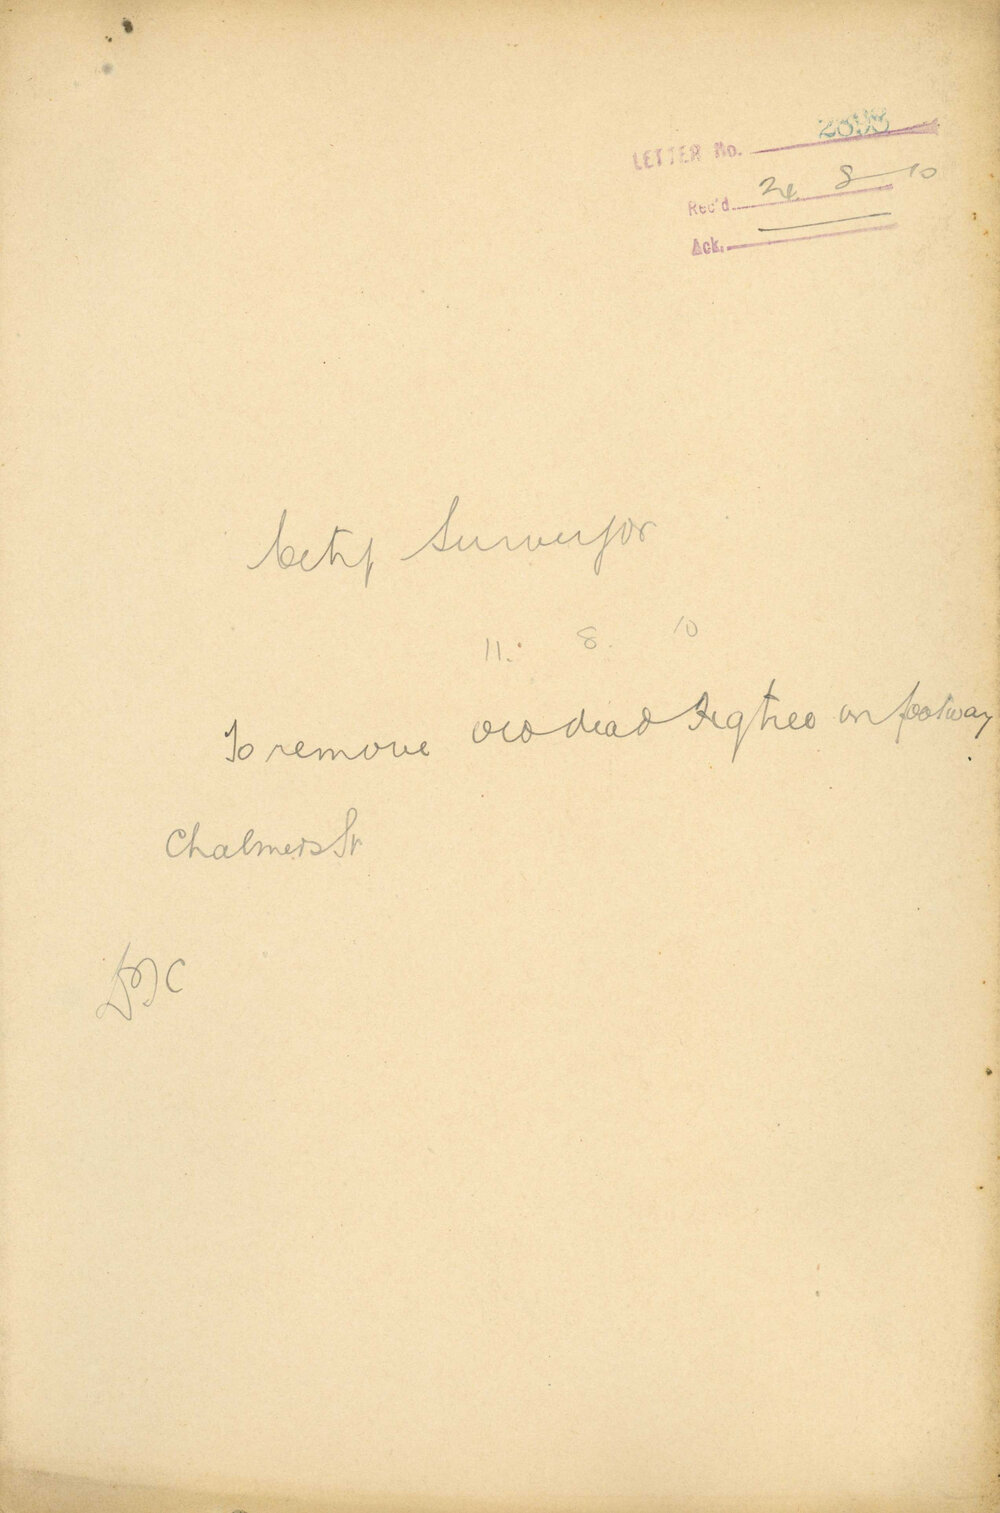 LETTER No. 2898
Rec'd. 24 8 10
Ack.
City Surveyor
11. 8. 10
To remove old dead Figtree on footway
Chalmers St